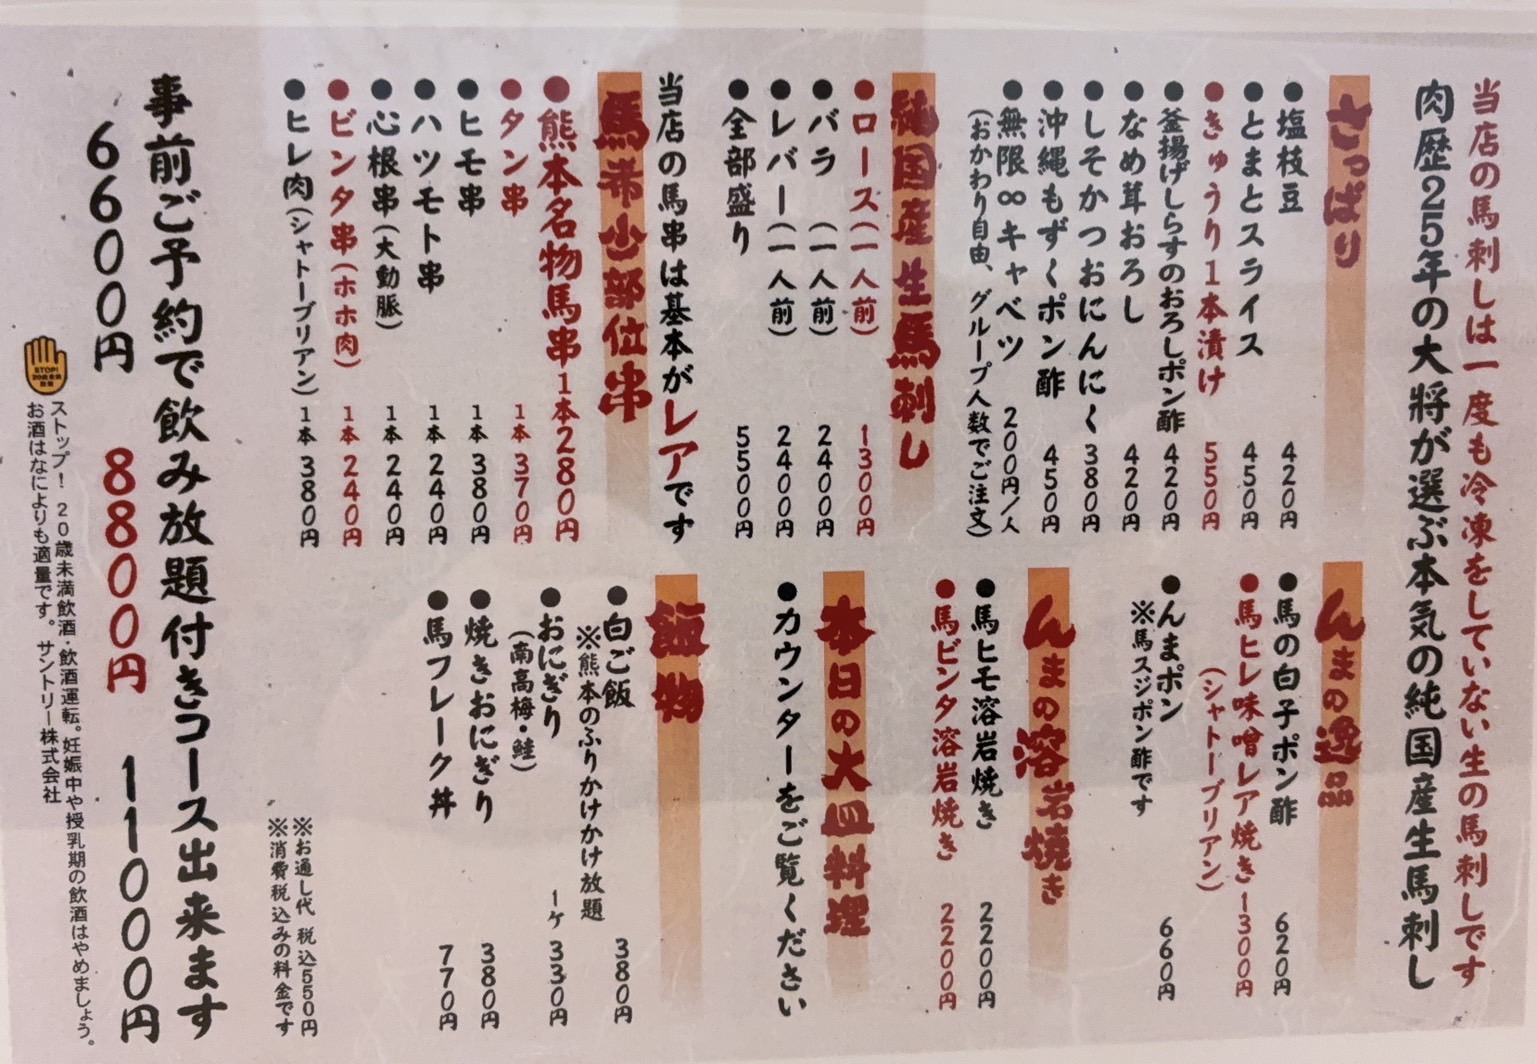 当店の馬刺しは一度も冷凍をしていない生の馬刺しです
肉歴25年の大将が選ぶ本気の純国産生馬刺し
さっぱり
●塩枝豆 420円
●とまとスライス 450円
●きゅうり1本漬け 550円
●釜揚げしらすのおろしポン酢 420円
●なめ茸おろし 420円
●しそかつおにんにく 380円
●沖縄もずくポン酢 450円
●無限∞キャベツ 200円/人
(おかわり自由、グループ人数でご注文)
純国産生馬刺し
●ロース(一人前) 1300円
●バラ(一人前) 2400円
●レバー(一人前) 2400円
●全部盛り 5500円
当店の馬串は基本がレアです
馬希少部位串
●熊本名物馬串1本280円
●タン串 1本370円
●ヒモ串 1本380円
●ハツモト串 1本240円
●心根串(大動脈) 1本240円
●ビンタ串(ホホ肉) 1本240円
●ヒレ肉(シャトーブリアン) 1本380円
んまの逸品
●馬の白子ポン酢 620円
●馬ヒレ味噌レア焼き1300円
(シャトーブリアン)
●んまポン 660円
※馬スジポン酢です
んまの溶岩焼き
●馬ヒモ溶岩焼き 2200円
●馬ビンタ溶岩焼き 2200円
本日の大皿料理
●カウンターをご覧ください
飯物
●白ご飯 380円
※熊本のふりかけかけ放題
●おにぎり 1ケ 330円
(南高梅・鮭)
●焼きおにぎり 380円
●馬フレーク丼 770円
※お通し代 税込550円
※消費税込みの料金です
事前ご予約で飲み放題付きコース出来ます
6600円 8800円 11000円
STOP!
ストップ! 20歳未満飲酒・飲酒運転。妊娠中や授乳期の飲酒はやめましょう。
お酒はなによりも適量です。サントリー株式会社